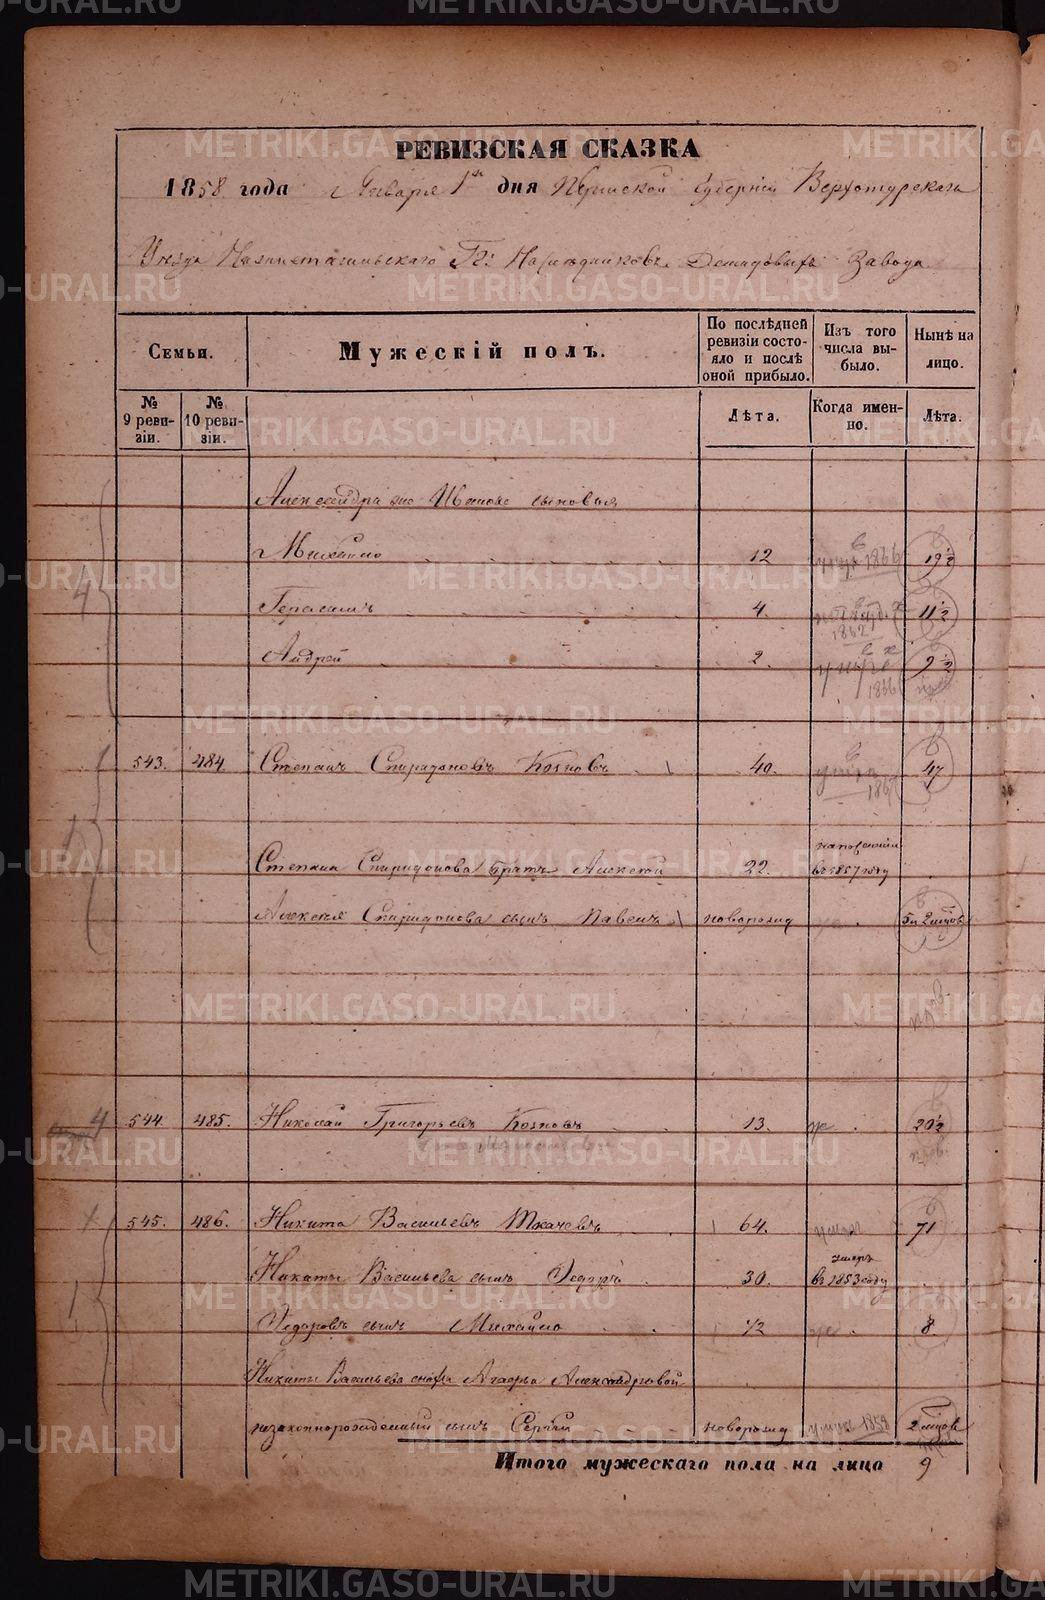 METRIKI.GASO-URAL.RU
РЕВИЗСКАЯ СКАЗКА
1858 года Января 1го дня Пермской Губернии Верхотурскаго
Уезда Нижнетагильскаго Гг. Наследниковъ Демидовыхъ Завода
Семьи. Мужескій полъ. По послѣдней ревизіи состояло и послѣ оной прибыло. Изъ того числа выбыло. Нынѣ на лицо.
№ 9 ревизіи. № 10 ревизіи. Лѣта. Когда именно. Лѣта.
Александра Иванова сыновья
Михайло 12 1866 19½
4
Герасимъ 4. 1862 11½
Андрей 2. умре 1866 9½
543. 484 Степанъ Спиридоновъ 40. 47
Степана Спиридонова братъ Алексей 22. въ 1857 году
Алексея Спиридонова сынъ Павелъ новорожд 5 и 2 мцов
4 544 485. Николай Григорьевъ 13. 20½
пров.
545. 486. Никита Васильевъ Ткачевъ 64. 71
Никиты Васильева сынъ Федоръ 30. умеръ въ 1853 году
Федоровъ сынъ Михайло ½ 8
Никиты Васильева сноха Агафья Александровой
незаконнорожденный сынъ Сергей новорожд 1858 2 мцов
Итого мужескаго пола на лицо 9